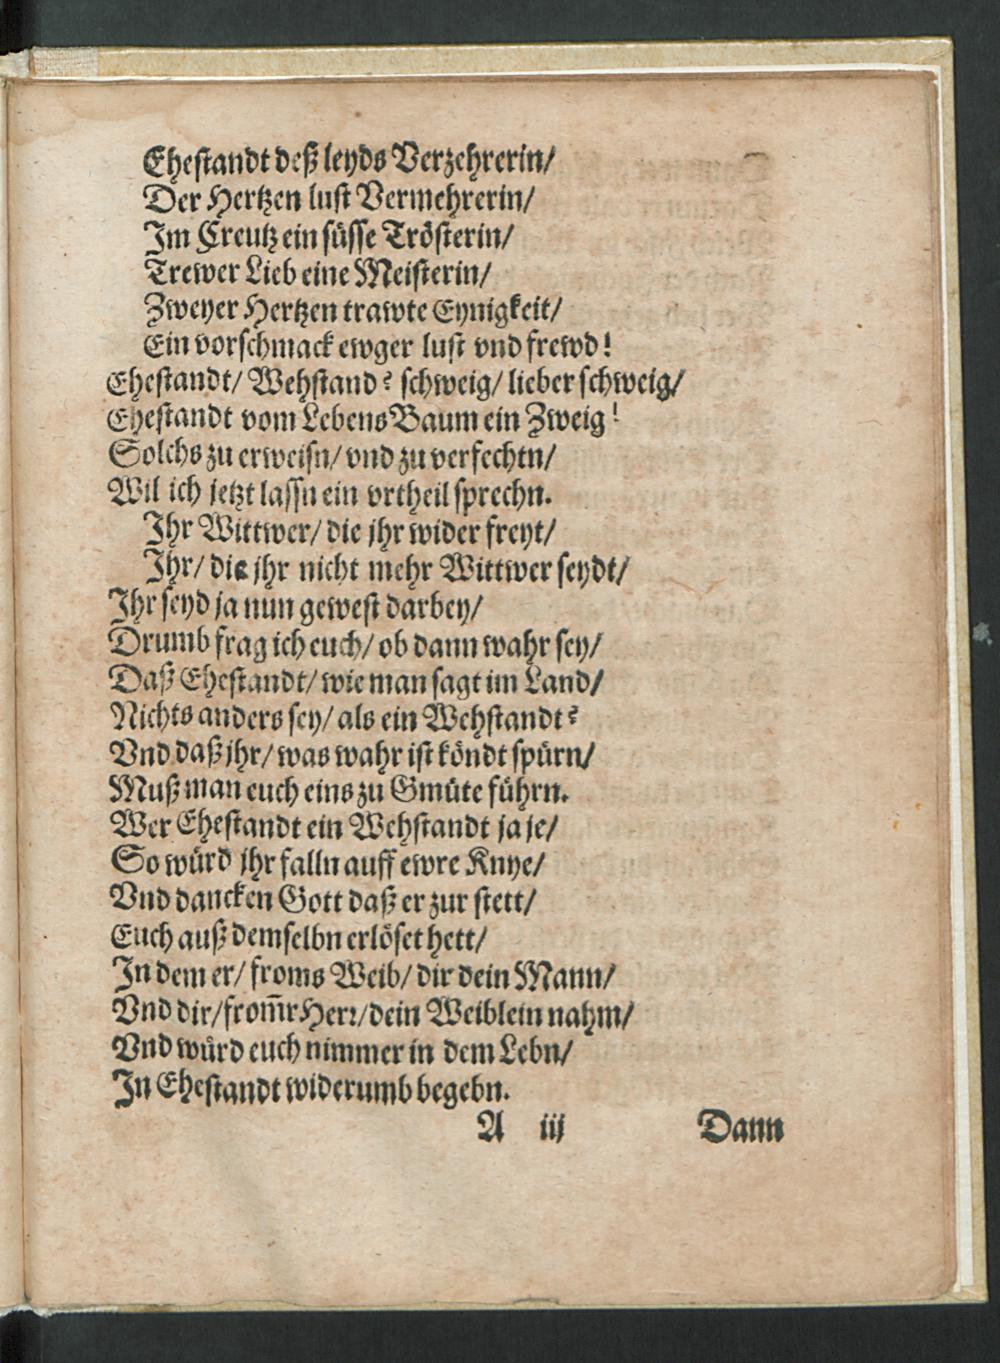 Ehestandt deß leyds Verzehrerin/
Der Hertzen lust Vermehrerin/
Im Creutz ein süsse Trösterin/
Trewer Lieb eine Meisterin/
Zweyer Hertzen trawte Eynigkeit/
Ein vorschmack ewger lust vnd frewd!
Ehestandt/ Wehstand? schweig/ lieber schweig/
Ehestandt vom LebensBaum ein Zweig!
Solchs zu erweisn/ vnd zu verfechtn/
Wil ich jetzt lassn ein vrtheil sprechn.
Ihr Wittwer/ die jhr wider freyt/
Ihr/ die jhr nicht mehr Wittwer seydt/
Ihr seyd ja nun gewest darbey/
Drumb frag ich euch/ ob dann wahr sey/
Daß Ehestandt/ wie man sagt im Land/
Nichts anders sey/ als ein Wehstandt?
Vnd daß jhr/ was wahr ist köndt spürn/
Muß man euch eins zu Gmüte führn.
Wer Ehestandt ein Wehstandt ja je/
So würd jhr falln auff ewre Knye/
Vnd dancken Gott daß er zur stett/
Euch auß demselbn erlöset hett/
In dem er/ froms Weib/ dir dein Mann/
Vnd dir/ from̄r Herr/ dein Weiblein nahm/
Vnd würd euch nimmer in dem Lebn/
In Ehestandt widerumb begebn.
A iij Dann